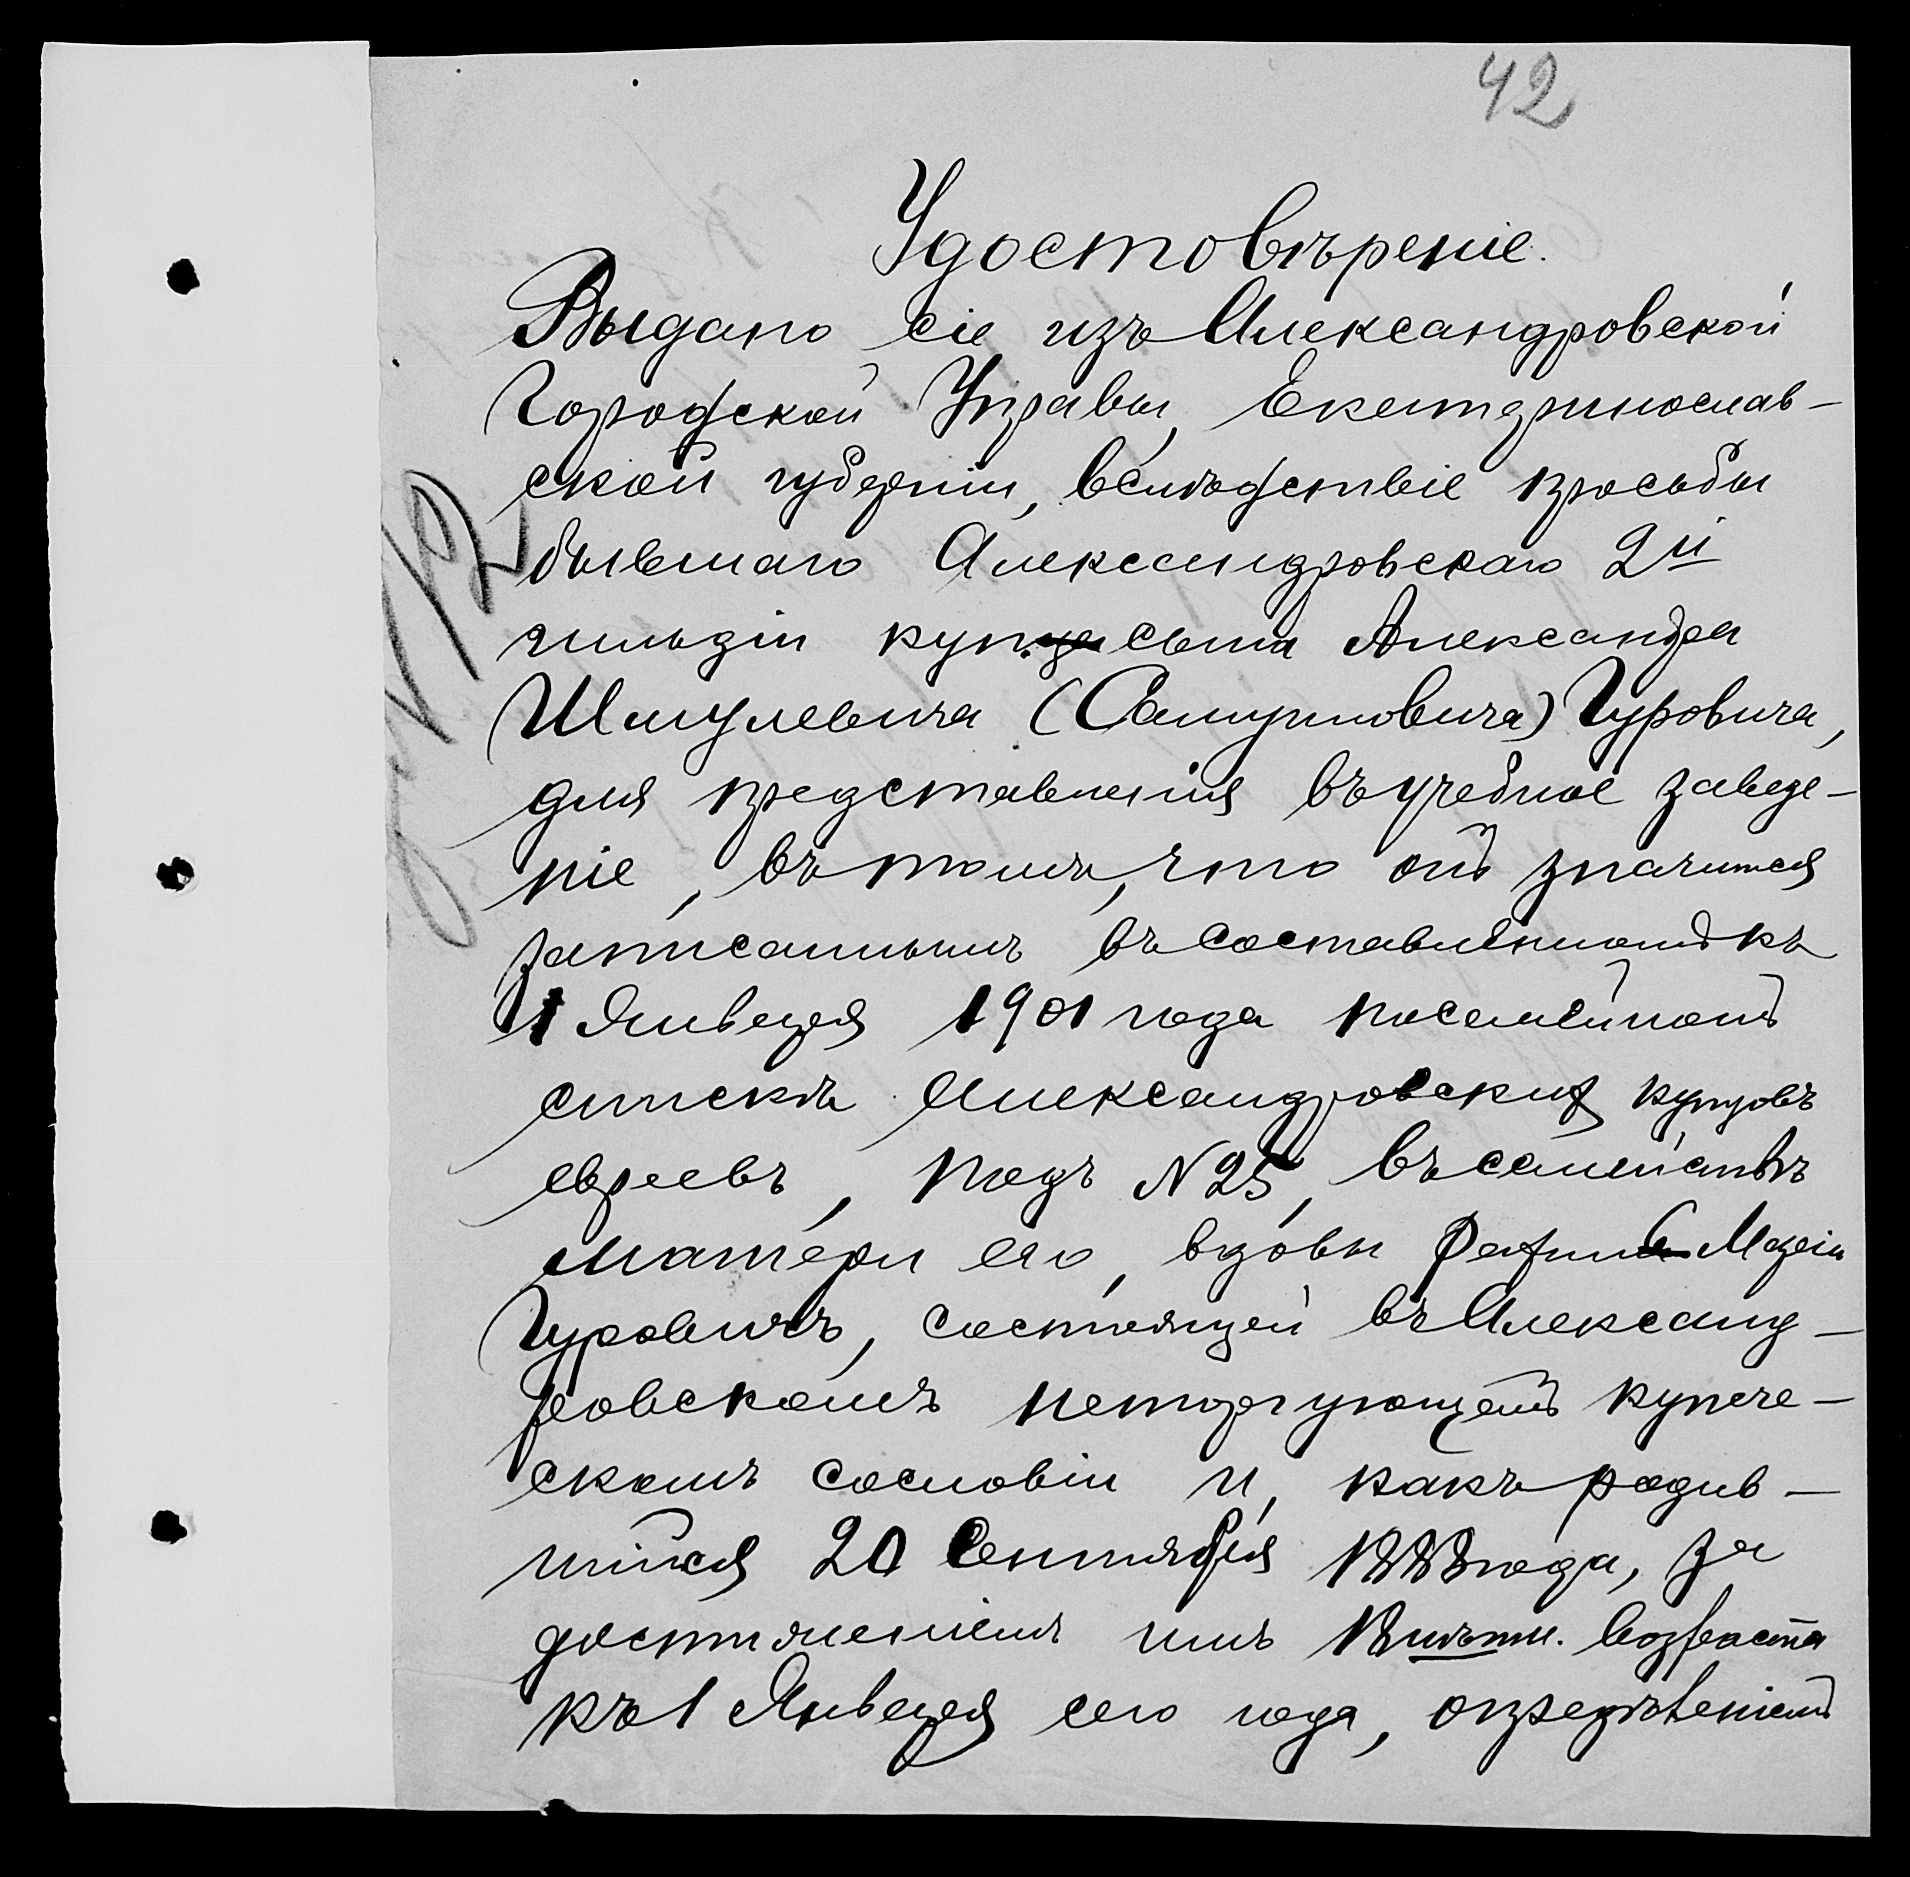 42
Удостовѣреніе.
Выдано сіе изъ Александровской
Городской Управы, Екатеринослав-
ской губерніи, вслѣдствіе просьбы
бывшаго Александровскаго 2й
гильдіи куп. сына Александра
Шмулевича (Самуиловича) Гуровича,
для представленія въ учебное заведе-
ніе, въ томъ, что онъ значится
записаннымъ въ составленномъ къ
1 Января 1901 года посемейномъ
спискѣ Александровскихъ купцовъ
евреевъ, подъ N 25, въ семействѣ
матери его, вдовы
Гуровичъ, состоящей въ Александ-
ровскомъ неторгующемъ купече-
скомъ сословіи и, какъ родив-
шійся 20 Сентября 1888 года, за
достиженіемъ имъ 18 лѣтн. возраста
къ 1 Января сего года, опредѣленіемъ